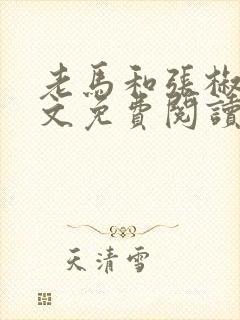 老馬和張椒
文免費閱讀
天清雪